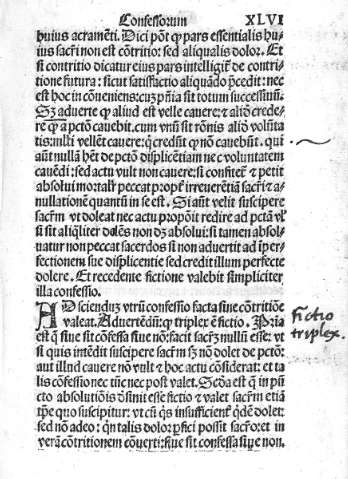 Confessorum XLVI
huius acramēti. Dici pōt ꝙ pars essentialis hu⸗
ius sacrī non est cōtritio: sed aliqualis dolor. Et
si contritio dicatur eius pars intelligit̄ de contri⸗
tione futura: sicut satisfactio aliquādo p̄cedit: nec
est hoc in cōueniens: cuz pn̄ia sit totum successiuū.
Sꝫ aduerte ꝙ aliud est velle cauere: ⁊ aliō crede⸗
re ꝙ a pctō cauebit. cum vnū sit rōnis aliō volūta
tis: multi vellēt cauere: q̄ credūt ꝙ nō cauebūt. qui
aūt nullā hēt de pctō displicētiam nec voluntatem
cauēdi: sed actu vult non cauere: si confitet̄ ⁊ petit
absolui mortalr̄ peccat propt̄ irreuerētiā sacrī ⁊ a⸗
nullationē quantū in se est. Si aūt velit suscipere
sacrm̄ vt doleat nec actu proponit redire ad pctā vl̓
si sit aliq̄liter dolēs non dꝫ absolui: si tamen absol⸗
uatur non peccat sacerdos si non aduertit ad īper⸗
fectionem sue displicentie sed credit illum perfecte
dolere. Et recedente fictione valebit simpliciter
illa confessio.
ADscienduz vtrū confessio facta sine cōtritiōe
valeat. Aduertēdū: ꝙ triplex ē fictio. Pria
est q̄ siue sit cōfessa siue nō: facit sacrꝫ nullū esse: vt
si quis intēdit suscipere sacrm̄ sꝫ nō dolet de pctō:
aut illud cauere nō vult ⁊ hoc actu cōsiderat: et ta
lis cōfessio nec tūc nec post valet. Scd̄a est q̄ in pū
cto absolutiōis d̄sinit esse fictio ⁊ valet sacrm̄ etiā
tꝑe quo suscipitur: vt cū q̄s insufficient̄ q̄dē dolet:
sed nō adeo: qn̄ talis dolor ꝑfici possit sacrō: et in
verā cōtritionem cōuerti: siue sit confessa suꝑe non.
fictio
triplex.